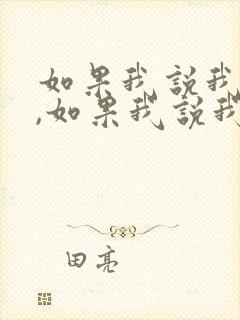 如果我說我
,如果我說我
田亮